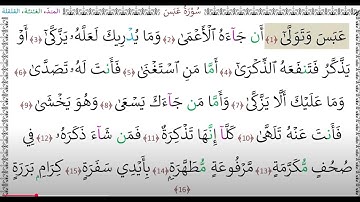 سُورَةُ عَبَسَ
عَبَسَ وَتَوَلَّىٰٓ ﴿١﴾ أَن جَآءَهُ ٱلْأَعْمَىٰ ﴿٢﴾ وَمَا يُدْرِيكَ لَعَلَّهُۥ يَزَّكَّىٰٓ ﴿٣﴾ أَوْ
يَذَّكَّرُ فَتَنفَعَهُ ٱلذِّكْرَىٰٓ ﴿٤﴾ أَمَّا مَنِ ٱسْتَغْنَىٰ ﴿٥﴾ فَأَنتَ لَهُۥ تَصَدَّىٰ ﴿٦﴾
وَمَا عَلَيْكَ أَلَّا يَزَّكَّىٰ ﴿٧﴾ وَأَمَّا مَن جَآءَكَ يَسْعَىٰ ﴿٨﴾ وَهُوَ يَخْشَىٰ ﴿٩﴾
فَأَنتَ عَنْهُ تَلَهَّىٰ ﴿١٠﴾ كَلَّآ إِنَّهَا تَذْكِرَةٌ ﴿١١﴾ فَمَن شَآءَ ذَكَرَهُۥ ﴿١٢﴾ فِى
صُحُفٍ مُّكَرَّمَةٍ ﴿١٣﴾ مَّرْفُوعَةٍ مُّطَهَّرَةٍۭ ﴿١٤﴾ بِأَيْدِى سَفَرَةٍ ﴿١٥﴾ كِرَامٍۭ بَرَرَةٍ
﴿١٦﴾